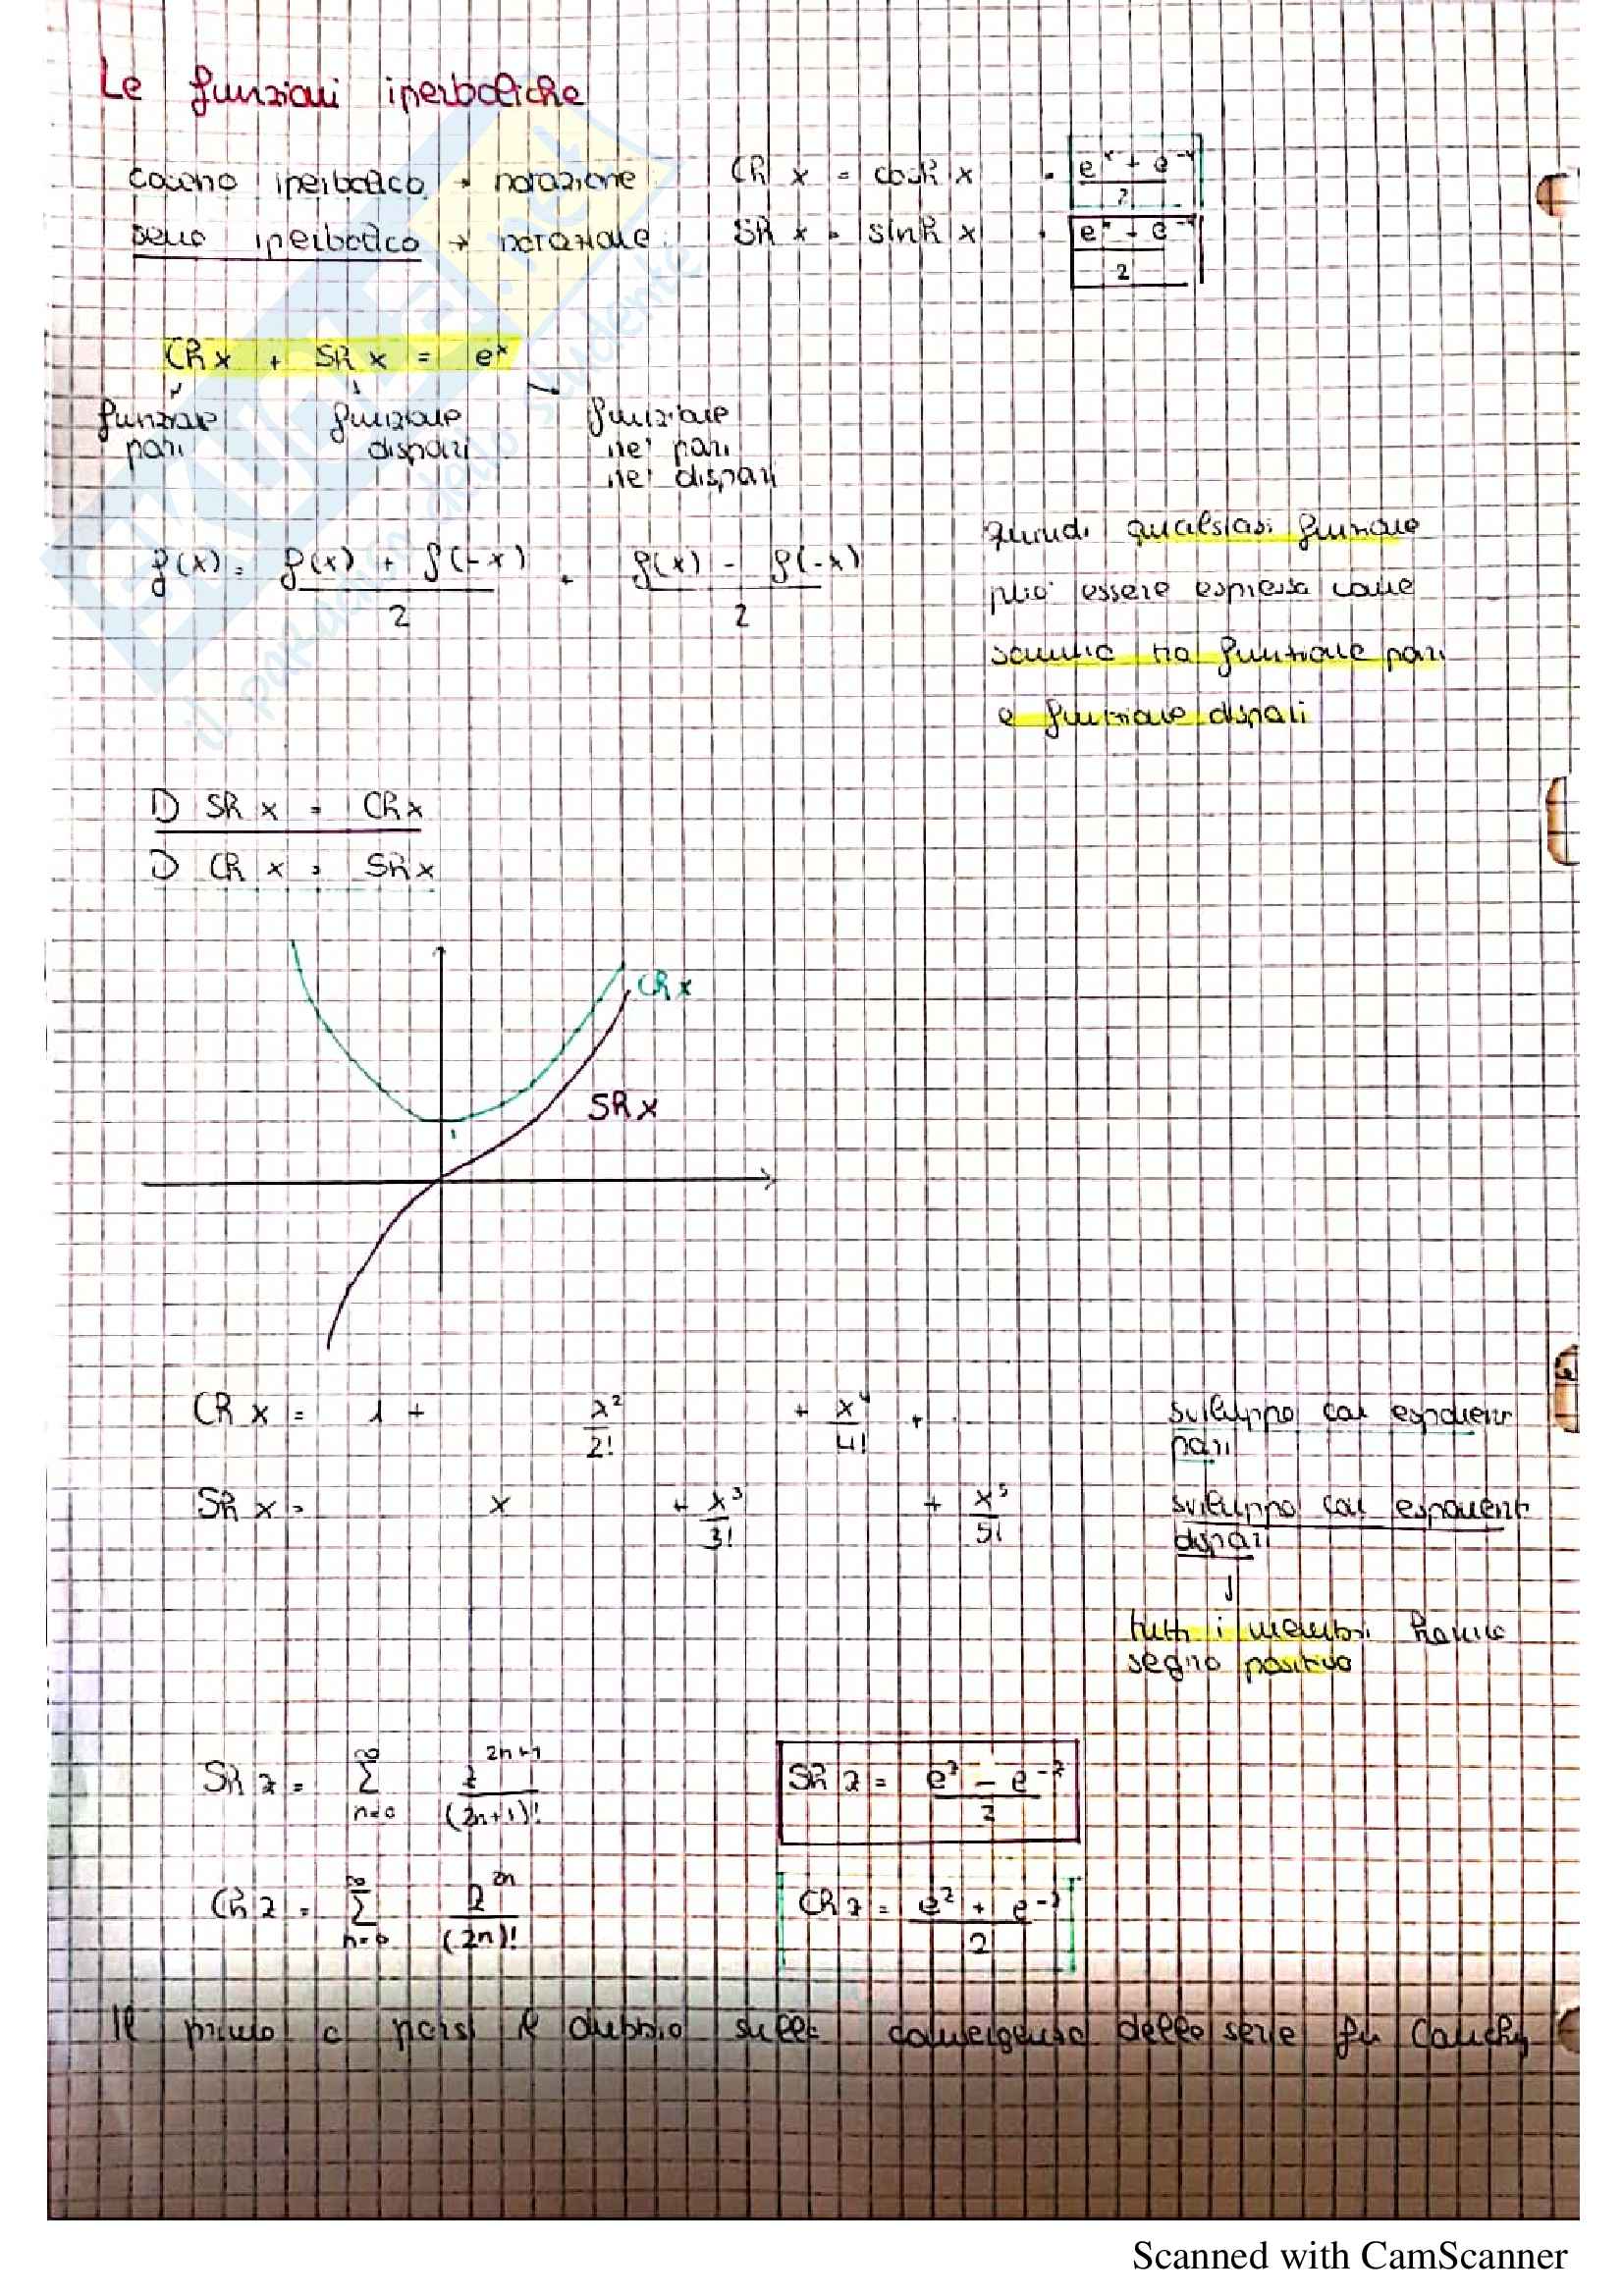 Le funzioni iperboliche
coseno iperbolico → notazione: Ch x = cosh x = (e^x + e^-x)/2
seno iperbolico → notazione: Sh x = sinh x = (e^x + e^-x)/2
Ch x + Sh x = e^x
funzione pari
funzione dispari
funzione ne' pari ne' dispari
f(x) = (f(x) + f(-x))/2 + (f(x) - f(-x))/2
quindi qualsiasi funzione
puo' essere espressa come
somma tra funzione pari
e funzione dispari
D Sh x = Ch x
D Ch x = Sh x
Ch x
Sh x
1
Ch x = 1 + x²/2! + x⁴/4! + ...
sviluppo con esponenti
pari
Sh x = x + x³/3! + x⁵/5!
sviluppo con esponenti
dispari
↓
tutti i membri hanno
segno positivo
Sh z = ∑_{n=0}^{∞} z^{2n+1}/(2n+1)!
Sh z = (e^z - e^-z)/2
Ch z = ∑_{n=0}^{∞} z^{2n}/(2n)!
Ch z = (e^z + e^-z)/2
Il primo a porsi il dubbio sulla convergenza delle serie fu Cauchy,
SKUOLA.net
il paradiso dello studente
Scanned with CamScanner